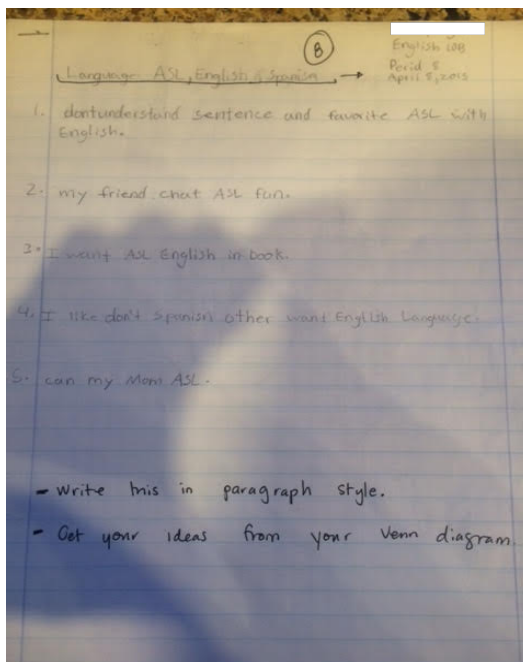 B
English 10B
Period 8
April 8, 2015
Language ASL, English & Spanish →
1. dontunderstand sentence and favorite ASL with
English.
2. my friend chat ASL fun.
3. I want ASL English in book.
4. I like don't Spanish other want English Language.
5. can my Mom ASL.
- Write this in paragraph style.
- Get your ideas from your Venn diagram.